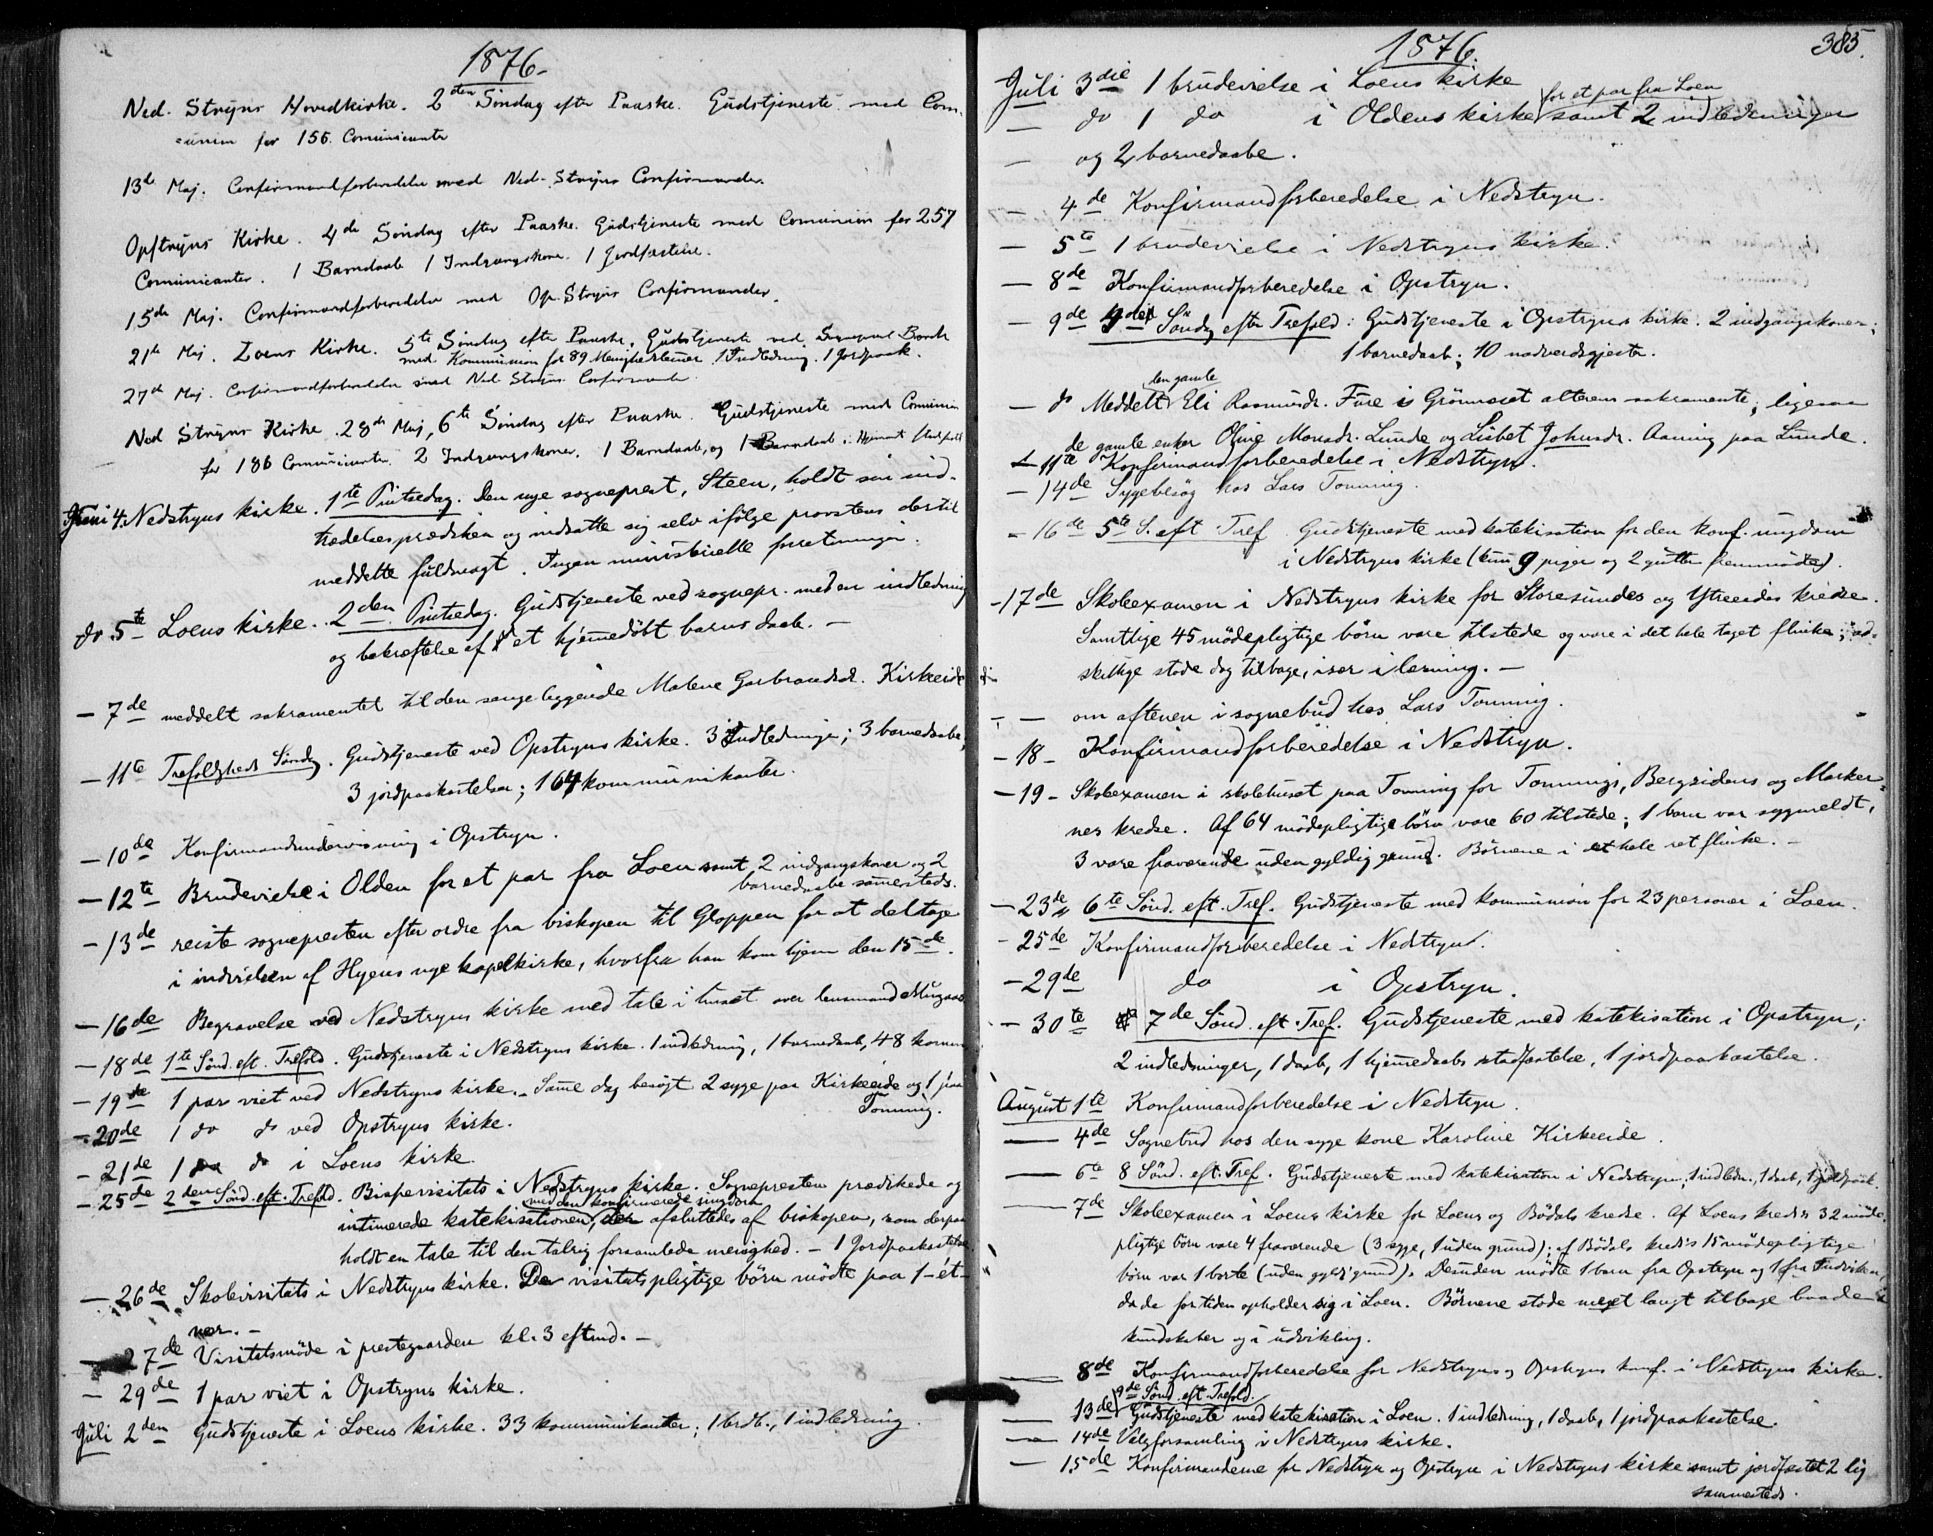 1876.
Ned. Stryns Hovedkirke. 2den Söndag efter Paaske. Gudstjeneste med Com-
=union for 156 Comunicanter
13de Maj. Confirmandforberedelse med Ned-Stryns Confirmander.
Opstryns Kirke. 4de Söndag efter Paaske. Gudstjeneste med Comunion for 257
Comunicanter. 1 Barndaab 1 Indgangskone. 1 Jordfæstelse.
15de Maj. Confirmandforberedelse med Op-Stryns Confirmander.
21de Maj. Loens Kirke. 5te Söndag efter Paaske. Gudstjeneste ved
med Kommunion for 89 Menighedslemer. 1 Indledning. 1 Jordpaak.
27de Maj. Confirmandforberedelse med Ned Stryns Confirmander
Ned Stryns Kirke. 28de Maj, 6te Söndag efter Paaske. Gudstjeneste med Comunion
for 186 Comunicanter. 2 Indgangskoner. 1 Barndaab, og 1 Barndaab i Hjemmet stadfæst
Juni 4. Nedstryns kirke. 1te Pintsedag. Den nye sogneprest, Steen, holdt sin ind-
trædelsesprædiken og indsatte sig selv ifölge provstens dertil
meddelte fuldmagt. Ingen ministerielle forretninger.
do 5te Loens kirke. 2den Pintsedag. Gudstjeneste ved sognepr. med en indledning
og bekræftelse af et hjemmedöbt barns daab. —
— 7de meddelt sakramentet til den sengeliggende Malene Gerbrandsd. Kirkeeide
— 11te Trefoldigheds Sönd. Gudstjeneste ved Opstryns kirke. 3 Indledninger; 3 barnedaabe,
3 jordpaakastelser; 164 kommunikanter.
— 10de Konfirmandundervisning i Opstryn.
— 12te Brudevielse i Olden for et par fra Loen samt 2 indgangskoner og 2
barnedaabe samesteds.
— 13de reiste sognepresten efter ordre fra biskopen til Gloppen for at deltage
i indvielsen af Hyens nye kapelkirke, hvorfra han kom hjem den 15de.
— 16de Begravelse ved Nedstryns kirke med tale i huset over lensmand
— 18de 1te Sönd. eft. Trefold. Gudstjeneste i Nedstryns kirke. 1 indledning, 1 barnedaab, 48 komm
— 19de 1 par viet ved Nedstryns kirke. Same dag besögt 2 syge paa Kirkeeide og 1 paa
Tonning.
— 20de 1 do do ved Opstryns kirke.
— 21de 1 do do i Loens kirke
— 25de 2den Sönd. eft. Trefold. Bispevisitats i Nedstryns kirke. Sognepresten prædikede og
med den konfirmerede ungdom
intimerede katekisationen, der afsluttedes af biskopen, som derpaa
holdt en tale til den talrig forsamlede menighed. — 1 Jordpaakastelse
— 26de Skolevisitats i Nedstryns kirke. De visitatspligtige börn mödte paa 1-et-
nær. —
— 27de Visitatsmöde i prestegaarden kl. 3 eftmd. —
— 29de 1 par viet i Opstryns kirke.
Juli 2den Gudstjeneste i Loens kirke. 33 kommunikanter; 1 brdb., 1 indledning.
385.
1876.
Juli 3die 1 brudevielse i Loens kirke
for et par fra Loen
— do 1 do i Oldens kirke samt 2 indledninger
— og 2 barnedaabe.
— 4de Konfirmandforberedelse i Nedstryn.
— 5te 1 brudevielse i Nedstryns kirke.
— 8de Konfirmandforberedelse i Opstryn.
— 9de 4de Sönd. efter Trefold: Gudstjeneste i Opstryns kirke. 2 indgangskoner;
1 barnedaab; 10 nadverdsgjester.
den gamle
— do Meddelt Eli Rasmusdr. Fure i Grönnæset alterens sakramente; ligesaa
de gamle enker Oline Monsdr. Lunde og Lisbet Johnsdr. Aaning paa Lunde.
— 11te Konfirmandforberedelse i Nedstryn.
— 14de Sygebesög hos Lars Tonning.
— 16de 5te S. eft Tref Gudstjeneste med katekisation for den konf. ungdom
i Nedstryns kirke (kun 9 piger og 2 gutter fremmödte).
— 17de Skoleexamen i Nedstryns kirke for Storesundes og Ytreeides kredse.
Samtlige 45 mödepligtige börn vare tilstede og vare i det hele taget flinke; ad-
skillige stode dog tilbage, især i læsning. —
— — om aftenen i sognebud hos Lars Tonning.
— 18 — Konfirmandforberedelse i Nedstryn.
— 19 — Skoleexamen i skolehuset paa Tonning for Tonnings, Bergsidens og Marker-
nes kredse. Af 64 mödepligtige börn vare 60 tilstede; 1 barn var sygmeldt,
3 vare fraværende uden gyldig grund. Börnene i et hele ret flinke. —
— 23de 6te Sönd. eft. Tref. Gudstjeneste med kommunion for 23 personer i Loen.
— 25de Konfirmandforberedelse i Nedstryn.
— 29de do i Opstryn.
— 30te 7de Sönd. eft. Tref. Gudstjeneste med katekisation i Opstryn;
2 indledninger, 1 daab, 1 hjemmedaabs stadfæstelse, 1 jordpaakastelse.
August 1te Konfirmandforberedelse i Nedstryn.
— 4de Sognebud hos den syge kone Karoline Kirkeeide.
— 6te 8 Sönd. eft. Tref. Gudstjeneste med katekisation i Nedstryn; 1 indledn., 1 daab, 1 jordpaak.
— 7de Skoleexamen i Loens kirke for Loens og Bödals kredse. Af Loens kreds's 32 möde-
pligtige börn vare 4 fraværende (3 syge, 1 uden grund); af Bödals kreds's 15 mödepligtige
börn var 1 borte (uden gyldig grund). Desuden mödte 1 barn fra Opstryn og 1 fra Indviken,
da de for tiden opholder sig i Loen. Börnene stode meget langt tilbage baade i
kundskaber og i udvikling.
— 8de Konfirmandforberedelse for Nedstryns og Opstryns konf. i Nedstryns kirke.
9de Sönd. eft. Trefold.
— 13de Gudstjeneste med katekisation i Loen. 1 indledning, 1 daab, 1 jordpaakastelse.
— 14de Valgforsamling i Nedstryns kirke.
— 15de Konfirmanderne for Nedstryn og Opstryn i Nedstryns kirke samt jordfæstet 2 lig
sammesteds.